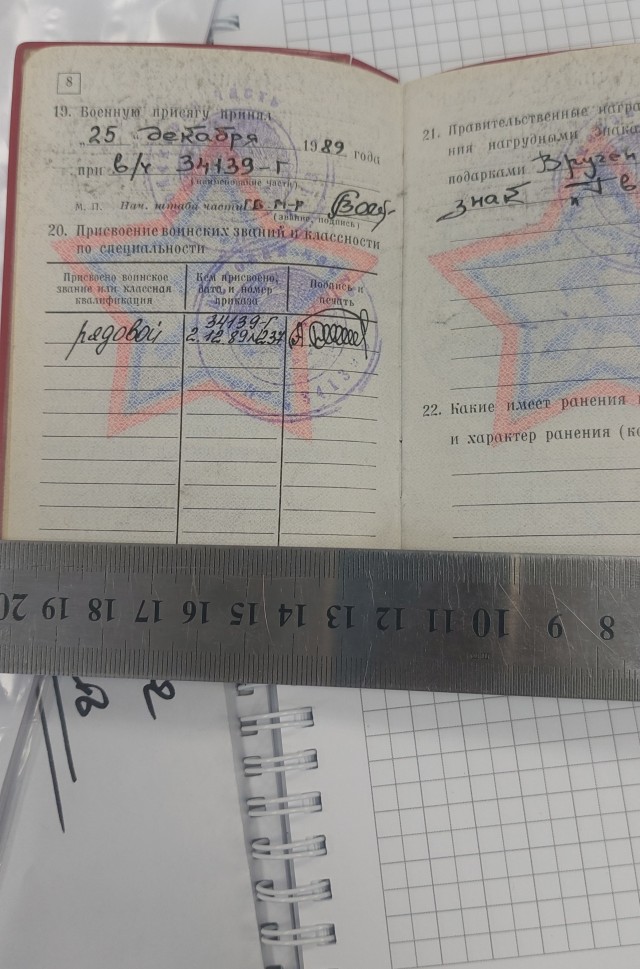 8
19. Военную присягу принял
„25 декабря 1989 года
при в/ч 34139-Г
(наименование части)
М. П. Нач. штаба части ГВ. М-Р
(звание, подпись)
20. Присвоение воинских званий и классности
по специальности
Присвоено воинское звание или классная квалификация
Кем присвоено, дата и номер приказа
Подпись и печать
рядовой
34139-Г
2.12.89 №237
21. Правительственные
ния нагрудными
подарками Вручен
знак
22. Какие имеет ранения
и характер ранения
8 9 10 11 12 13 14 15 16 17 18 19 20